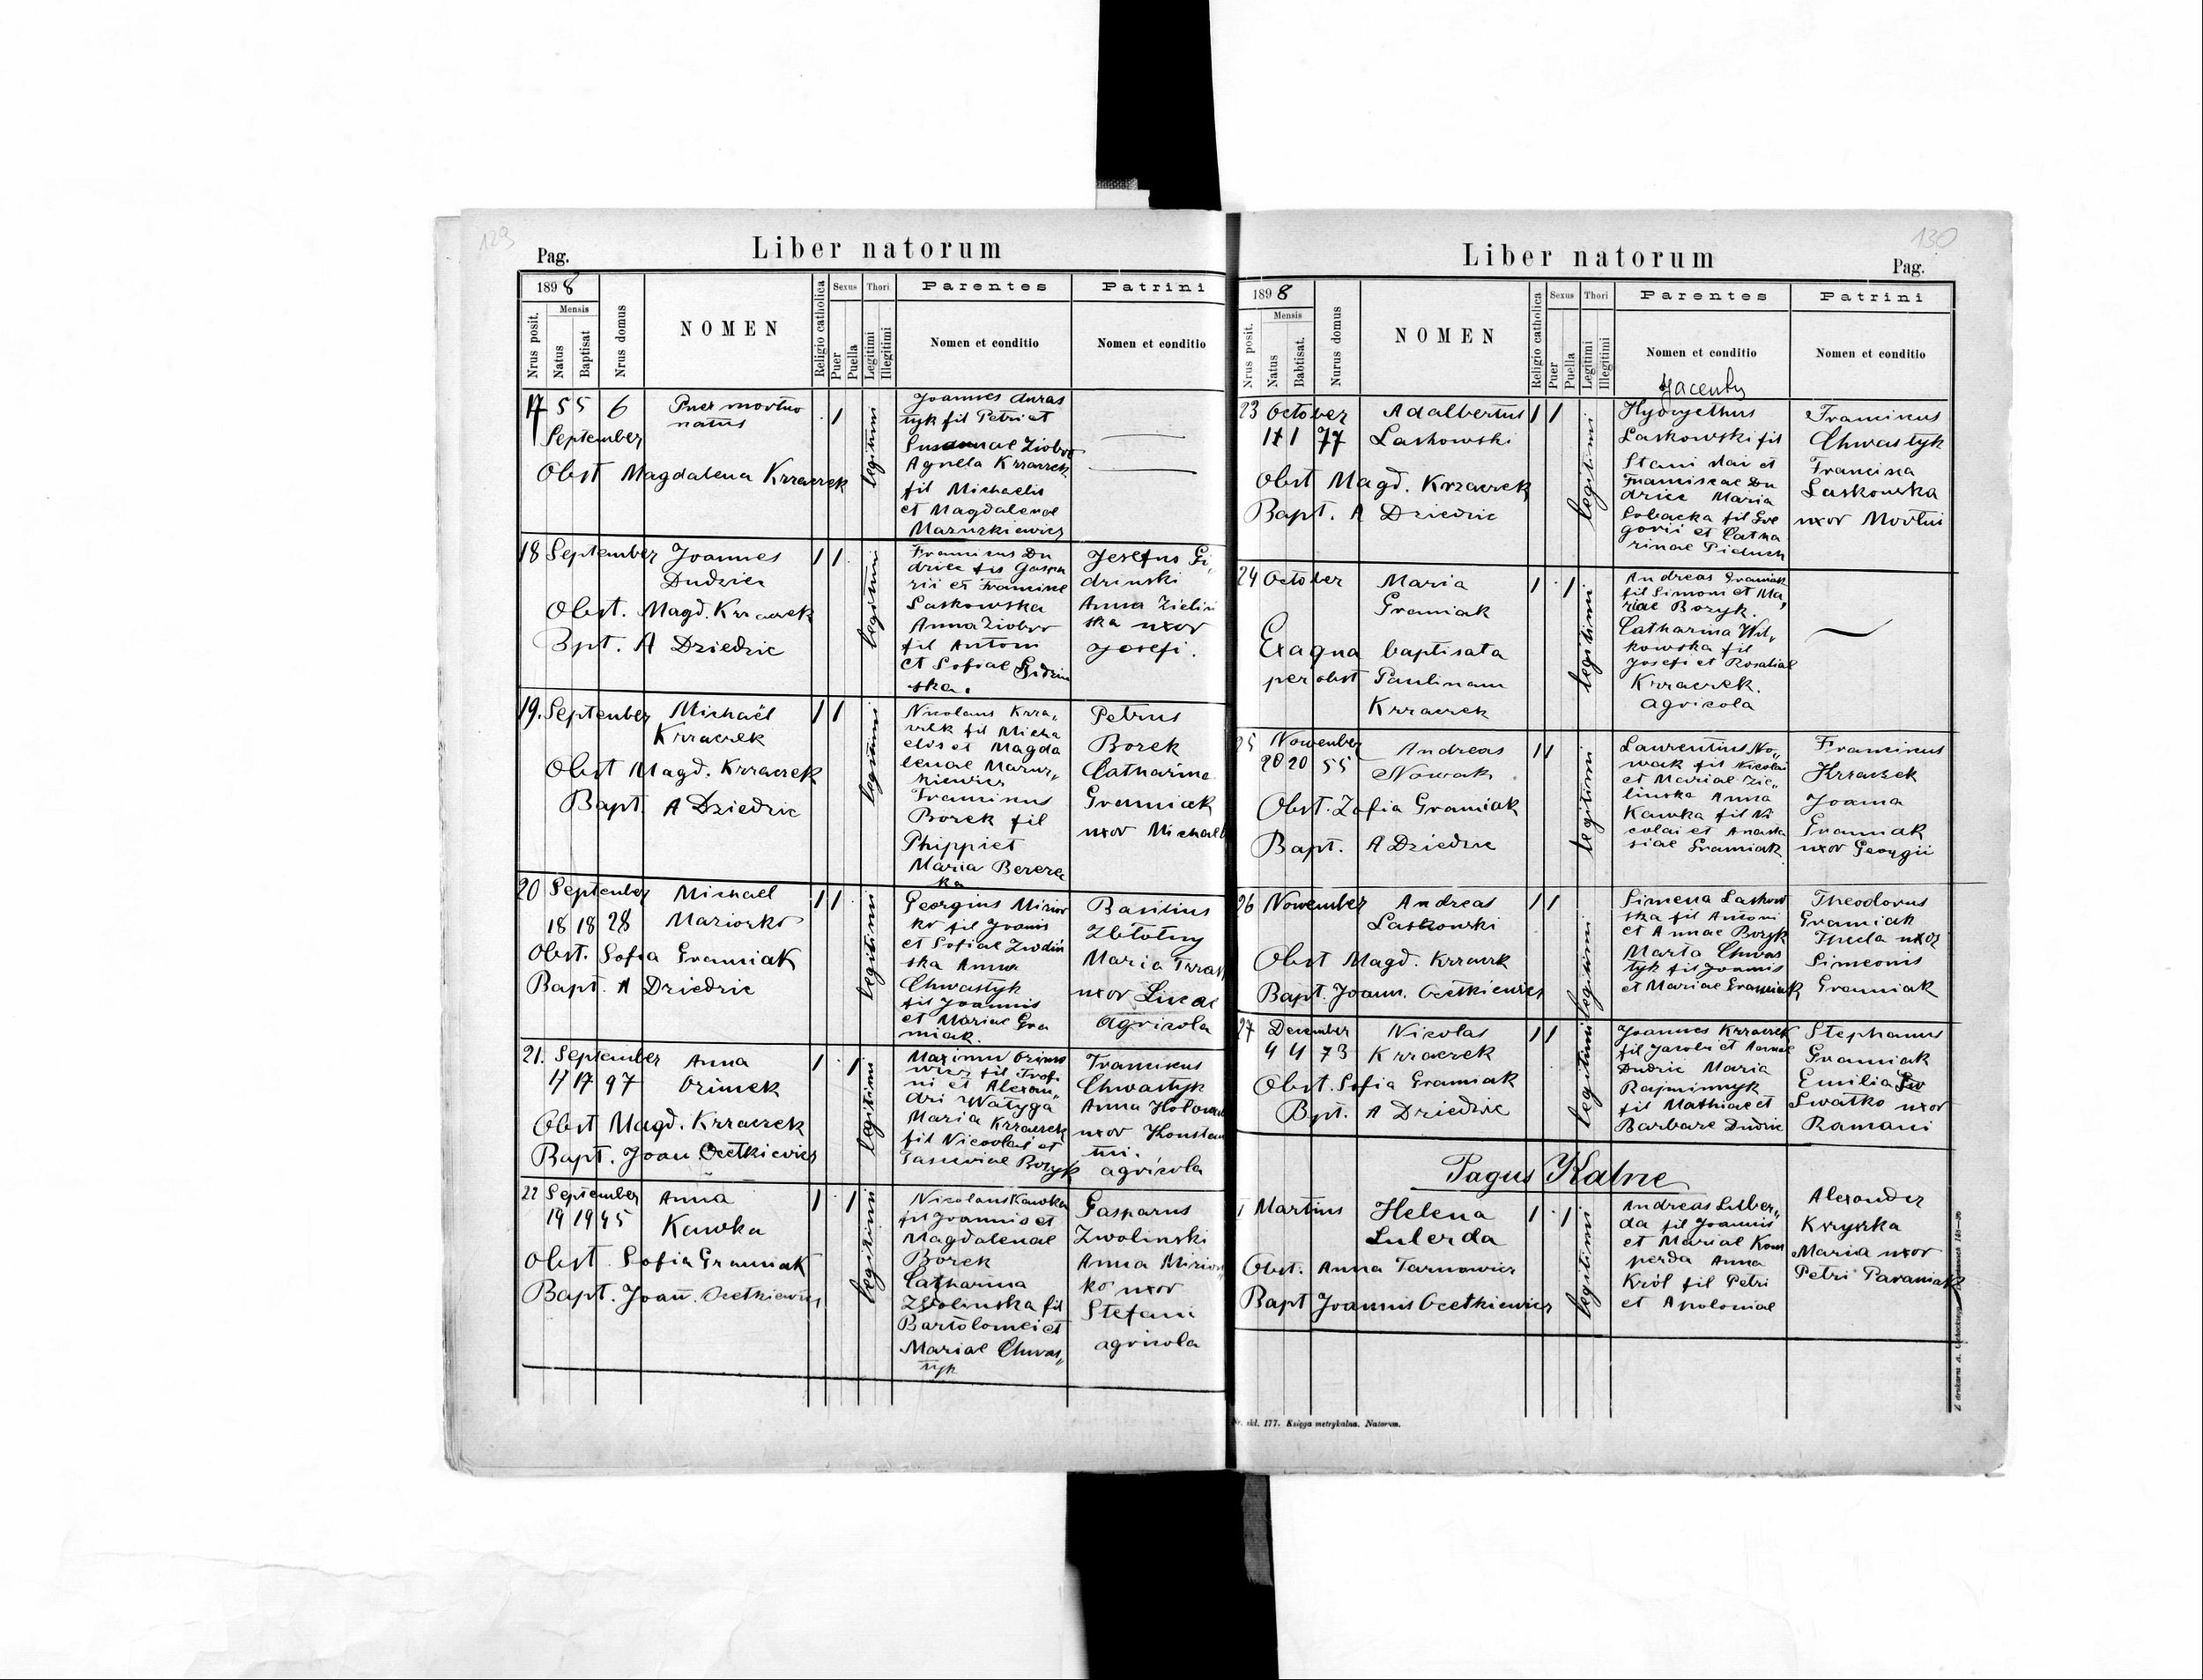 129
Pag.
Liber natorum
1898
Nrus posit.
Mensis
Natus
Baptisat
Nrus domus
NOMEN
Religio catholica
Sexus
Puer
Puella
Thori
Legitimi
Illegitimi
Parentes
Nomen et conditio
Patrini
Nomen et conditio
17 5 5 6 Puer mortuo
natus
September
Obst Magdalena Krzaczek
legitimi
Joannes
tyk fil Petri et
Susannae Ziobro
Agnela Krzaczek
fil Michaelis
et Magdalenae
Mazurkiewicz
18 September Joannes
Dudzicz
Obst. Magd. Krzaczek
Bpt. A Dziedzic
legitimi
Franciscus Du
dzicz fil Gaspa
rii et Franciscae
Laskowska
Anna Ziobro
fil Antoni
et Sofiae Gidzin
ska.
Josefus Gi„
dzinski
Anna Zielin
ska uxor
Josefi.
19. September Michaël
Krzaczek
Obst Magd. Krzaczek
Bapt. A Dziedzic
legitimi
Nicolaus Krza„
czek fil Micha
elis et Magda
lenae Mazur„
kiewicz
Borek fil
Phippi et
Maria Berezec
ka
Petrus
Borek
Catharina
Gramiak
uxor Michaeli
20 September Michael
18 18 28 Maziorko
Obst. Sofia Gramiak
Bapt. A Dziedzic
legitimi
Georgius Mizior
ko fil Joanis
et Sofiae
ska Anna
Chwastyk
fil Joannis
et Mariae Gra
miak.
Basilius
Złotorny
Maria
uxor Lucae
agricola
21. September Anna
17 17 97 Ozimek
Obst Magd. Krzaczek
Bapt. Joan Ocetkiewicz
legitimi
ni et Alexan„
dri Watyga
Maria Krzaczek
fil Nicolai et
Borzyk
Franciscus
Chwastyk
Anna
uxor Konstan
tini.
agricola
22 September Anna
19 19 45 Kawka
Obst. Sofia Gramiak
Bapt. Joan. Ocetkiewicz
legitimi
Nicolaus Kawka
fil Joannis et
Magdalenae
Borek
Catharina
Zwolinska fil
Bartolomei et
Mariae Chwas„
tyk
Gasparus
Zwolinski
Anna Mizior„
ko uxor
Stefani
agricola
130
Liber natorum
Pag.
1898
Nrus posit.
Mensis
Natus
Babtisat.
Nurus domus
NOMEN
Religio catholica
Sexus
Puer
Puella
Thori
Legitimi
Illegitimi
Parentes
Nomen et conditio
Patrini
Nomen et conditio
23 October Adalbertus
1 1 77 Laskowski
Obst Magd. Krzaczek
Bapt. A Dziedzic
legitimi
Laskowski fil
Stanislai et
Franciscae Du
dzicz Maria
Sobacka fil Gre
gorii et Catha
rinae Pieduch
Franciscus
Chwastyk
Francisca
Laskowska
uxor Mortui
24 October Maria
Gramiak
Ex aqua baptisata
per obst Paulinam
Krzaczek
legitimi
Andreas Gramiak
fil Simoni et Ma„
riae Borzyk.
Catharina Wil„
kowska fil
Josefi et Rosaliae
Krzaczek.
agricola
25 November Andreas
20 20 55 Nowak
Obst. Zofia Gramiak
Bapt. A Dziedzic
legitimi
Laurentius No„
wak fil Nicolai
et Mariae Zie„
linska Anna
Kawka fil Ni
colai et Anasta
siae Gramiak
Franciscus
Krzaczek
Joana
Gramiak
uxor Georgii
26 November Andreas
Laskowski
Obst Magd. Krzaczek
Bapt. Joann. Ocetkiewicz
legitimi
Simena Laskow
ska fil Antoni
et Annae Borzyk
Marta Chwas
tyk fil Joannis
et Mariae Gramiak
Theodorus
Gramiak
Thecla uxor
Simeonis
Gramiak
27 December Nicolas
4 4 73 Krzaczek
Obst. Sofia Gramiak
Bpt. A Dziedzic
legitimi
Joannes Krzaczek
fil Jacobi et Annae
Dudzic Maria
fil Mathiae et
Barbare Dudzic
Stephanus
Gramiak
Emilia
Swatko uxor
Romani
Pagus Kalne
1 Martius Helena
Luberda
Obst. Anna Tarnawicz
Bapt Joannis Ocetkiewicz
legitimi
Andreas Luber„
da fil Joannis
et Mariae Kom
perda Anna
Król fil Petri
et Apoloniae
Alexander
Kszyszka
Maria uxor
Petri Paraniak
Nr. skl. 177. Księga metrykalna. Natorum.